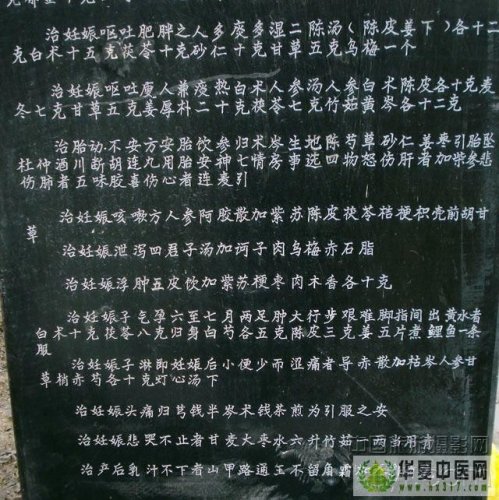 治妊娠呕吐肥胖之人多痰多湿二陈汤(陈皮姜下)各十二
克白术十五克茯苓十克砂仁十克甘草五克乌梅一个
治妊娠呕吐廋人兼痰热白术人参汤人参白术陈皮各十克麦
冬七克甘草五克姜厚朴二十克茯苓七克竹茹黄岑各十二克
治胎动不安方安胎饮参归术岑生地陈芍草砂仁姜枣引胎坠
杜仲酒川断胡连九用胎安神七情房事选四物怒伤肝者加柴参悲
伤肺者五味胶喜伤心者连麦引
治妊娠咳嗽方人参阿胶散加紫苏陈皮茯苓桔梗枳壳前胡甘
草
治妊娠泄泻四君子汤加诃子肉乌梅赤石脂
治妊娠浮肿五皮饮加紫苏梗枣肉木香各十克
治妊娠子气孕六至七月两足肿大行步艰难脚指间出黄水者
白术十克茯苓八克归身白芍各五克陈皮三克姜五片煮鲤鱼一条
服
治妊娠子淋即妊娠后小便少而涩痛者导赤散加枯岑人参甘
草梢赤芍各十克灯心汤下
治妊娠头痛归芎钱半岑术钱茶煎为引服之安
治妊娠悲哭不止者甘麦大枣水六升竹茹一两当用者
治产后乳汁不下者山甲路通王不留角霜
华夏中医网
www.hx317.com